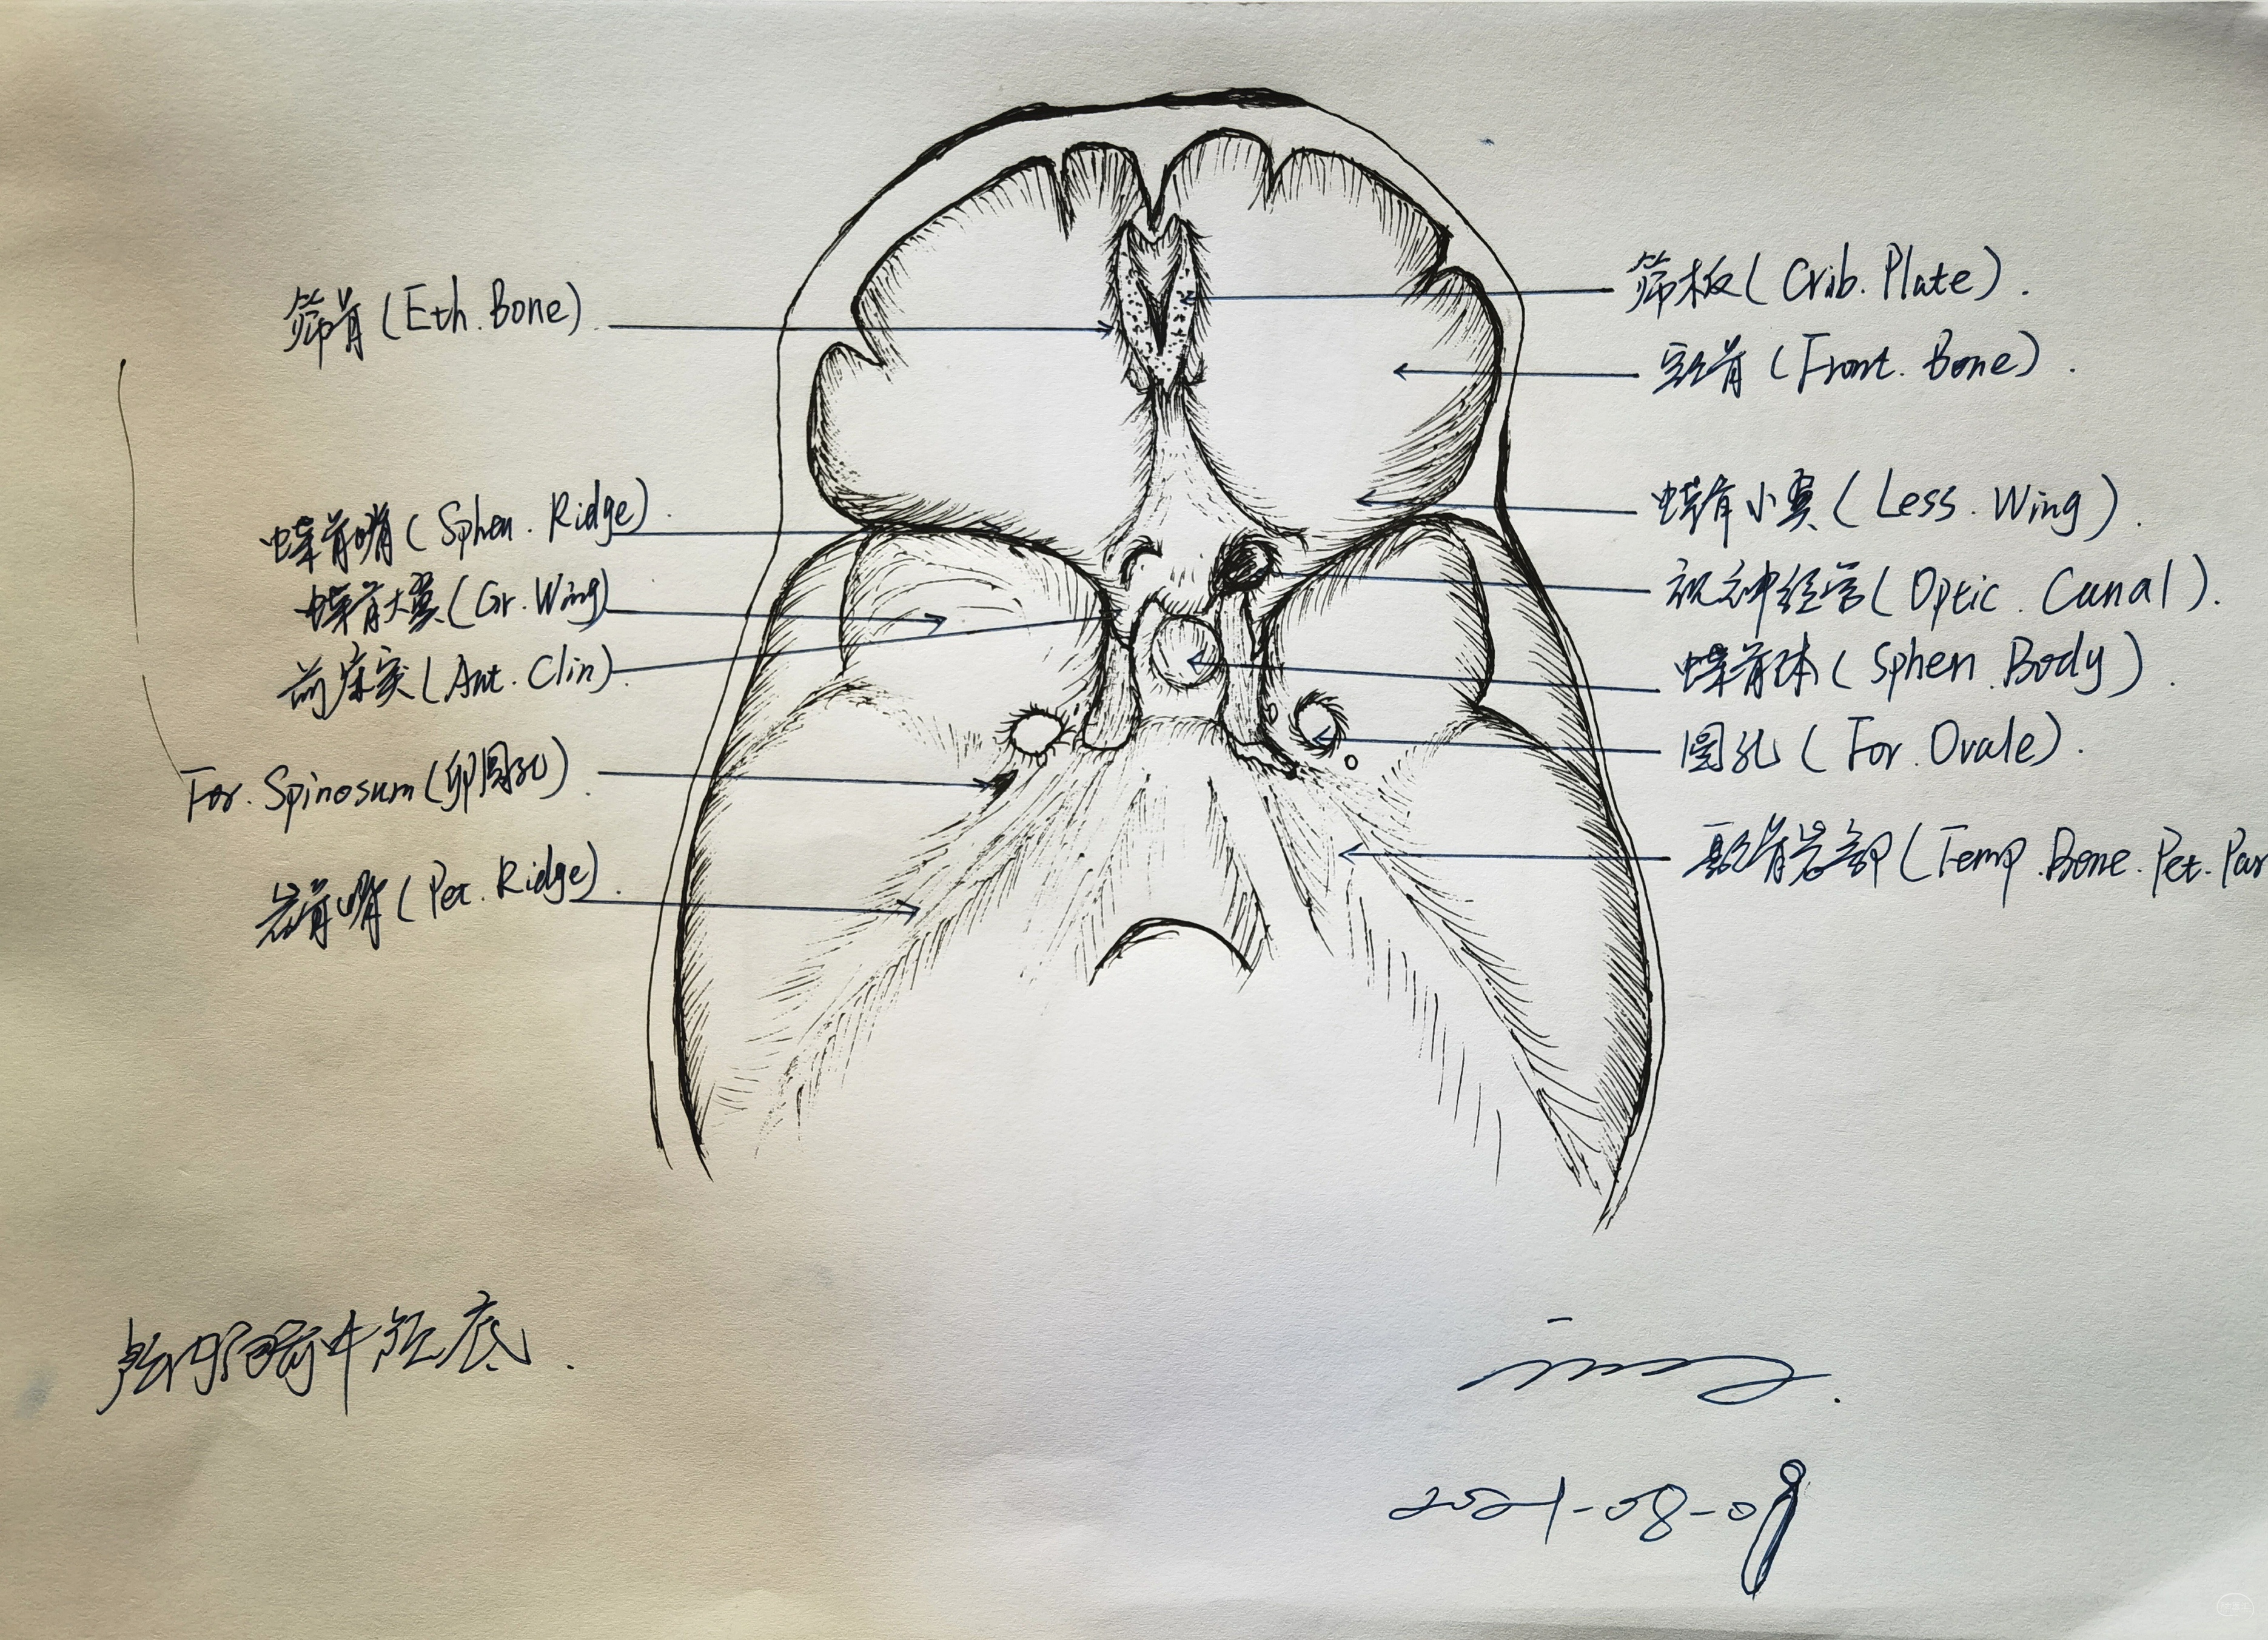 筛骨(Eth.Bone).
蝶骨嵴(Sphen.Ridge).
蝶骨大翼(Gr.Wing)
前床突(Ant.Clin).
For.Spinosum(卵圆孔).
岩骨嵴(Pet.Ridge).
筛板(Crib.Plate).
额骨(Front.Bone).
蝶骨小翼(Less.Wing).
视神经管(Optic.Canal).
蝶骨体(Sphen.Body).
圆孔(For.Ovale).
颞骨岩部(Temp.Bone.Pet.Par
前中颅底.
2021-08-09